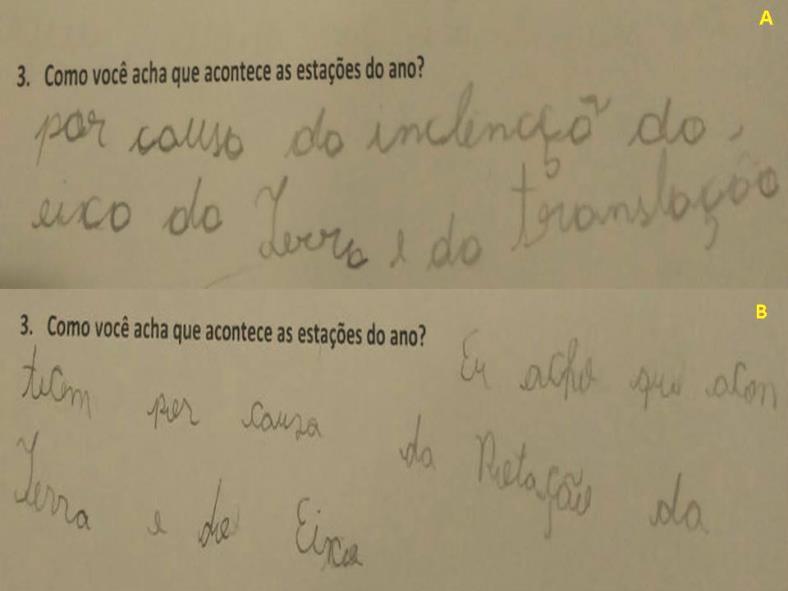 A
3. Como você acha que acontece as estações do ano?
por causa da inclencçõ da
eixo da Terra e da translação
B
3. Como você acha que acontece as estações do ano?
Eu acho que acon
tecem por causa da Rotação da
Terra e do Eixo